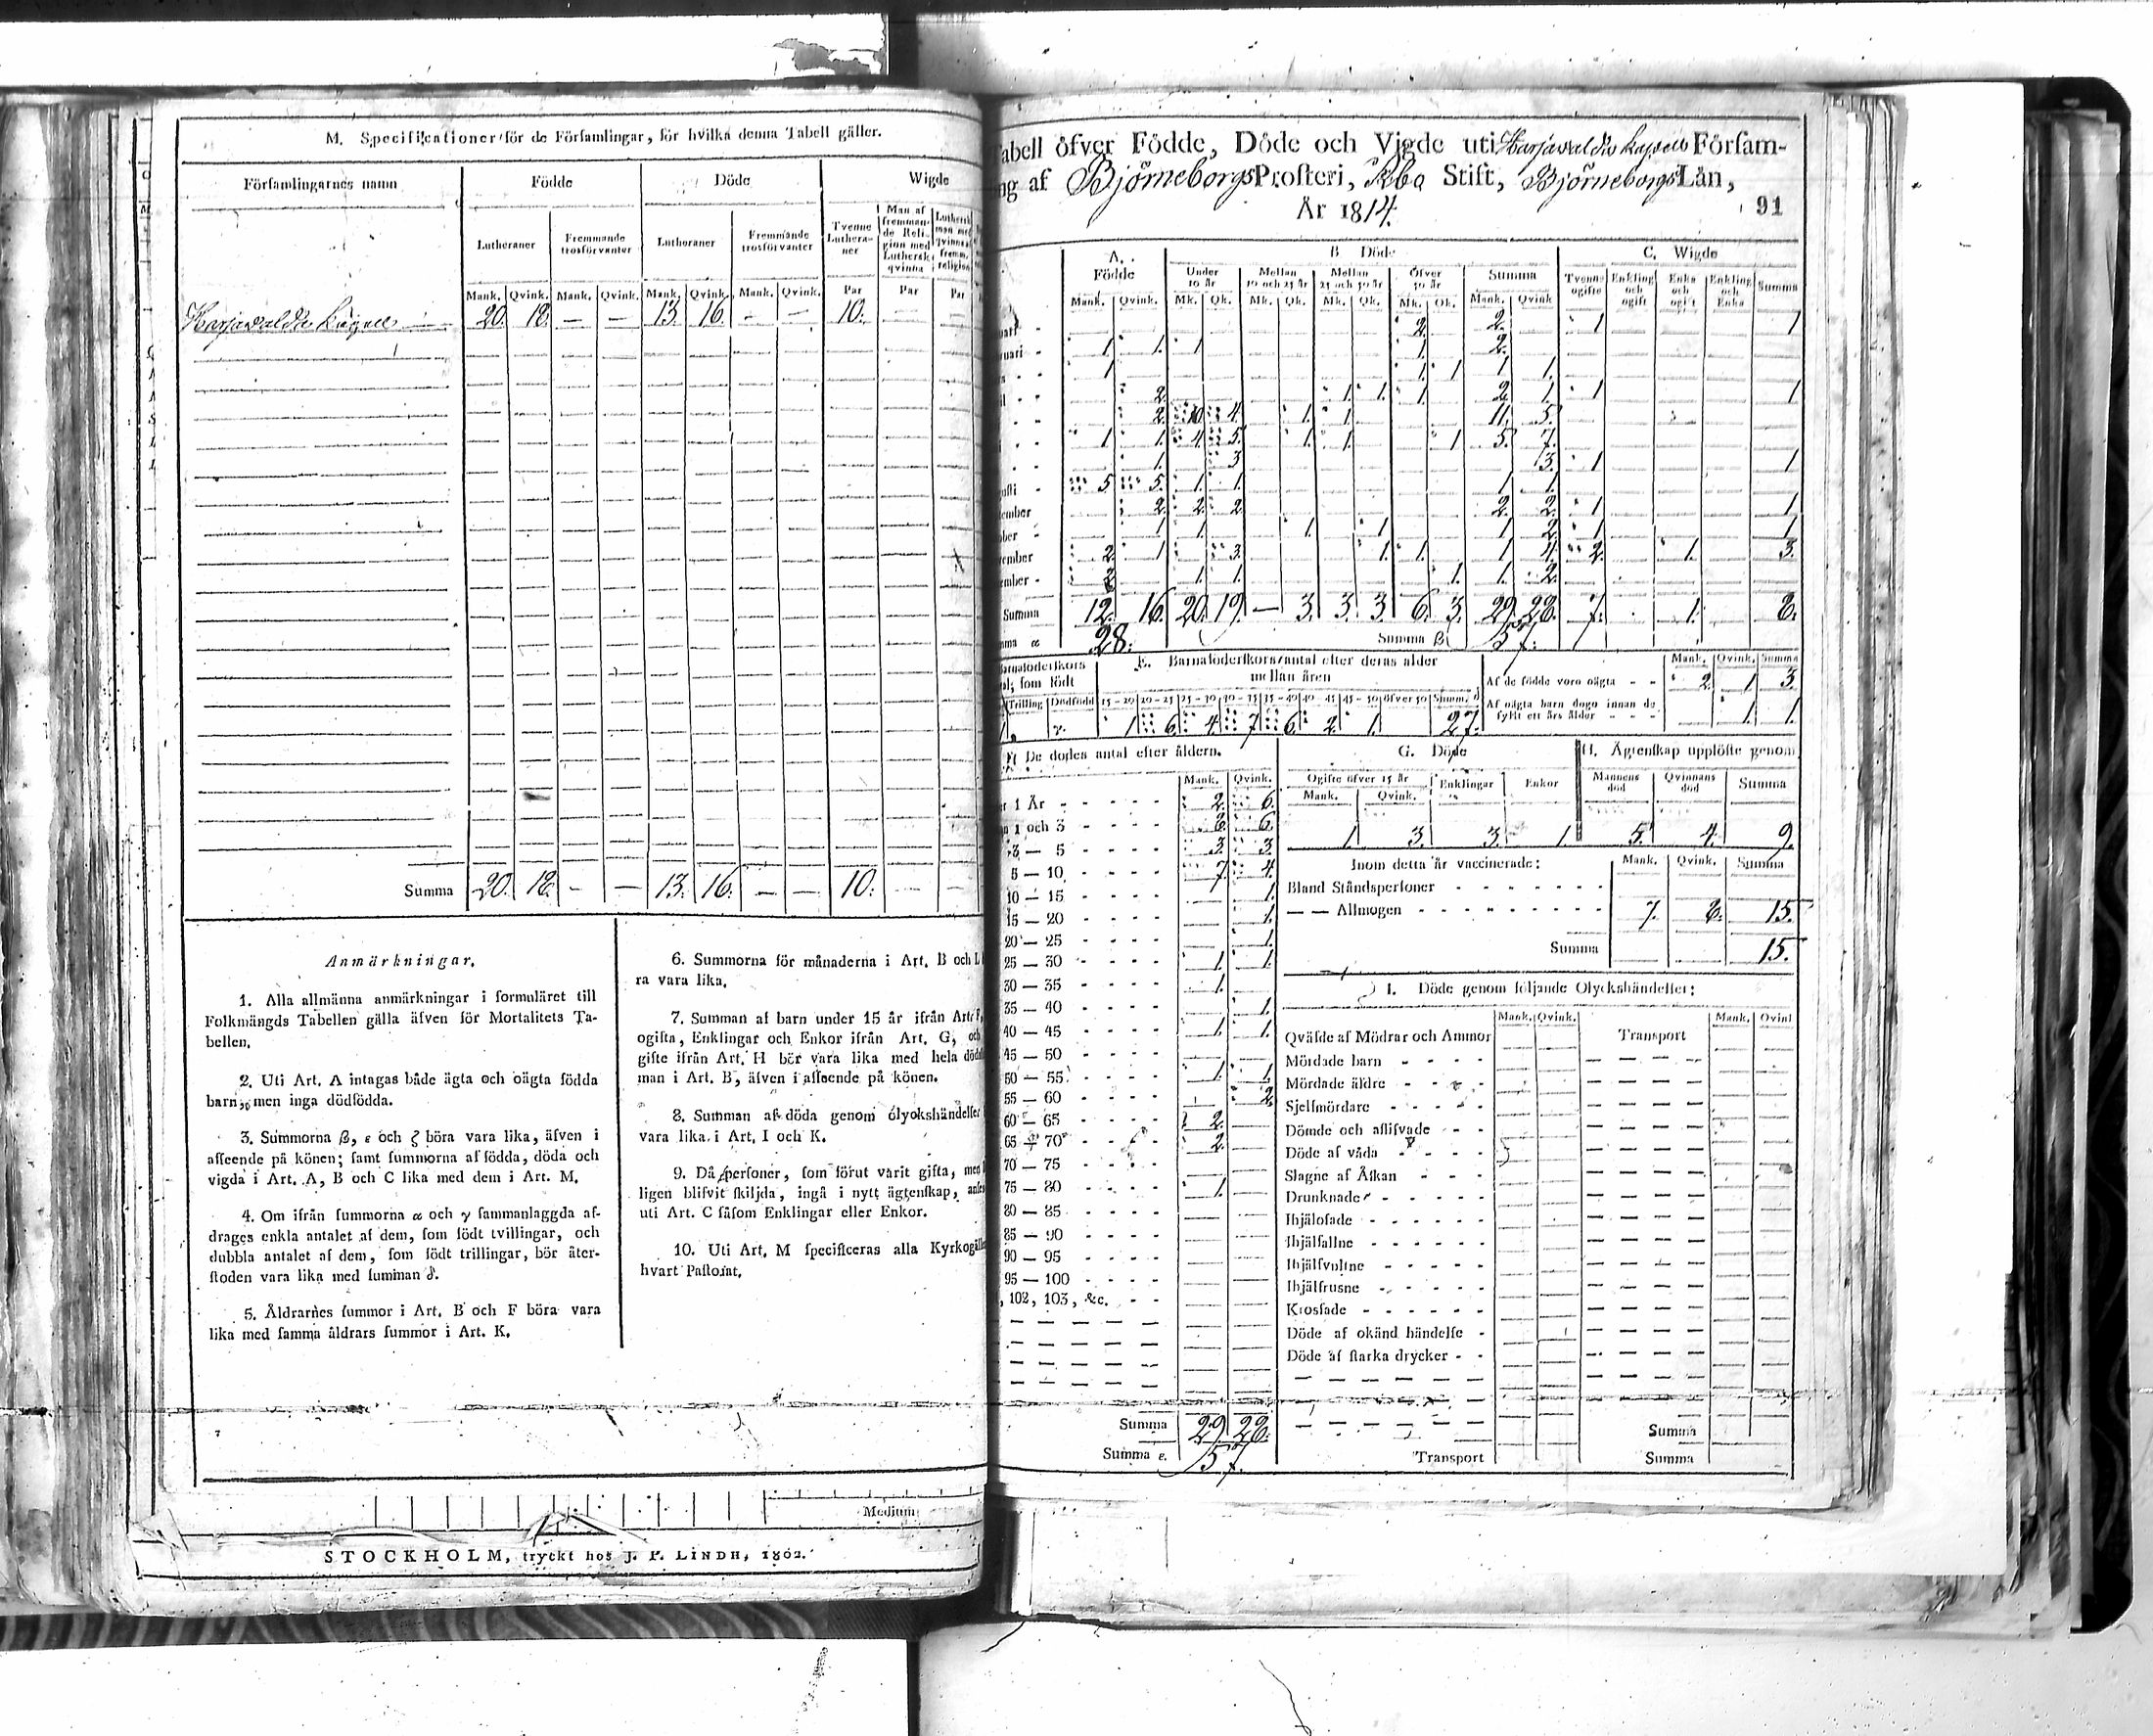 M. Specificationer för de Församlingar, för hvilka denna Tabell gäller.
Församlingarnes namn Födde Döde Wigde
Lutheraner Fremmande trosförvanter Lutheraner Fremmande trosförvanter Tvenne Lutheraner Man af fremmande Religion med Luthersk qvinna
Mank. Qvink. Mank. Qvink. Mank. Qvink. Mank. Qvink. Par Par Par
Harjavalda Capell 20. 18. — — 13. 16. — — 10. —
Summa 20. 18. — — 13. 16. — — 10. — —
Anmärkningar.
1. Alla allmänna anmärkningar i formuläret till
Folkmängds Tabellen gälla äfven för Mortalitets Ta-
bellen.
2. Uti Art. A intagas både ägta och oägta födda
barn, men inga dödfödda.
3. Summorna β, ε och ζ böra vara lika, äfven i
afseende på könen; samt summorna af födda, döda och
vigda i Art. A, B och C lika med dem i Art. M.
4. Om ifrån summorna α och γ sammanlaggda af-
drages enkla antalet af dem, som födt tvillingar, och
dubbla antalet af dem, som födt trillingar, bör åter-
stoden vara lika med summan δ.
5. Åldrarnes summor i Art. B och F böra vara
lika med samma åldrars summor i Art. K.
6. Summorna för månaderna i Art. B och L
ra vara lika.
7. Summan af barn under 15 år ifrån Art. F,
ogifta, Enklingar och Enkor ifrån Art. G, och
gifte ifrån Art. H bör vara lika med hela död
man i Art. B, äfven i afseende på könen.
8. Summan af döda genom olyckshändelser
vara lika i Art. I och K.
9. Då personer, som förut varit gifta, med
ligen blifvit skiljda, ingå i nytt ägtenskap,
uti Art. C såsom Enklingar eller Enkor.
10. Uti Art. M specificeras alla Kyrkogäll
hvart Pastorat.
Medium
STOCKHOLM, tryckt hos J. P. LINDH, 1802.
abell öfver Födde, Döde och Vigde uti Harjavalda kapells Försam-
ng af Björneborgs Prosteri, Åbo Stift, Björneborgs Län,
År 1814. 91
A. Födde B Döde C. Wigde
Under 10 år Mellan 10 och 25 år Mellan 25 och 50 år Öfver 50 år Summa Tvenne ogifte Enkling och ogift Enka och ogift Enkling och Enka Summa
Mank. Qvink. Mk. Qk. Mk. Qk. Mk. Qk. Mk. Qk. Mank. Qvink
uari - 2. 2. 1 1
ruari - 1 1. 1 1. 2.
s - - 1 1. 1 1 1.
il - - 2. 1. 1. 1. 2. 1. 1 1
- - 2. 10 4. 1. 1. 11. 5.
- - 1 1. 4 5. 1. 1. 1 5. 7.
- - 1. 3 3. 1 1
usti - 5 5. 1 1. 1 1.
tember 2. 2. 2. 2. 2. 1 1
ober - 1 1. 1 1 1 2. 1 1
vember 2. 1 3. 1. 1. 1 4. 2. 1. 3.
ember - 2 1. 1. 1. 1. 2.
Summa 12. 16. 20. 19. — 3. 3. 3. 6. 3. 29. 28. 7. 1. 8.
mma α 28. Summa β 57.
arnaföderskors
al, som födt
Trilling Dödfödd
E. Barnaföderskors antal efter deras ålder
mellan åren
15—20 20—25 25—30 30—35 35—40 40—45 45—50 öfver 50 Summ. δ
1 6 4. 7 6 2. 1. 27.
Mank. Qvink. Summa
Af de födde voro oägta - - 2. 1 3.
Af oägta barn dogo innan de
fyllt ett års ålder - - - 1. 1.
F De dödes antal efter åldern.
Mank. Qvink.
r 1 År - - - - - 2. 6.
n 1 och 3 - - - - 8. 6.
3 — 5 - - - - 3. 3.
5 — 10 - - - - 7. 4.
10 — 15 - - - - 1.
15 — 20 - - - - 1.
20 — 25 - - - - 1.
25 — 30 - - - - 1. 1.
30 — 35 - - - - 1.
35 — 40 - - - - 1.
40 — 45 - - - - 1. 1.
45 — 50 - - - -
50 — 55 - - - - 1. 1.
55 — 60 - - - - 2.
60 — 65 - - - - 2.
65 — 70 - - - - 2.
70 — 75 - - - -
75 — 80 - - - - 1.
80 — 85 - - - -
85 — 90 - - - -
90 — 95 - - - -
95 — 100 - - - -
, 102, 103, &c. - -
Summa 29 28.
Summa ε. 57.
G. Döde
Ogifte öfver 15 år Enklingar Enkor
Mank. Qvink.
1 3. 3. 1
H. Ägtenskap upplöste genom
Mannens död Qvinnans död Summa
5. 4. 9.
Inom detta år vaccinerade: Mank. Qvink. Summa
Bland Ståndspersoner - - - - - - -
— — Allmogen - - - - - - - - - 7. 8. 15.
Summa 15.
I. Döde genom följande Olyckshändelser:
Mank. Qvink. Transport Mank. Qvink
Qväfde af Mödrar och Ammor
Mördade barn - - - -
Mördade äldre - - - -
Sjelfmördare - - - - -
Dömde och aflifvade - -
Döde af våda - - - -
Slagne af Åskan - - -
Drunknade - - - - -
Ihjälosade - - - - - -
Ihjälfallne - - - - - -
Ihjälfrusne - - - - -
Krossade - - - - - -
Döde af okänd händelse -
Döde af starka drycker - -
Summa
Transport Summa